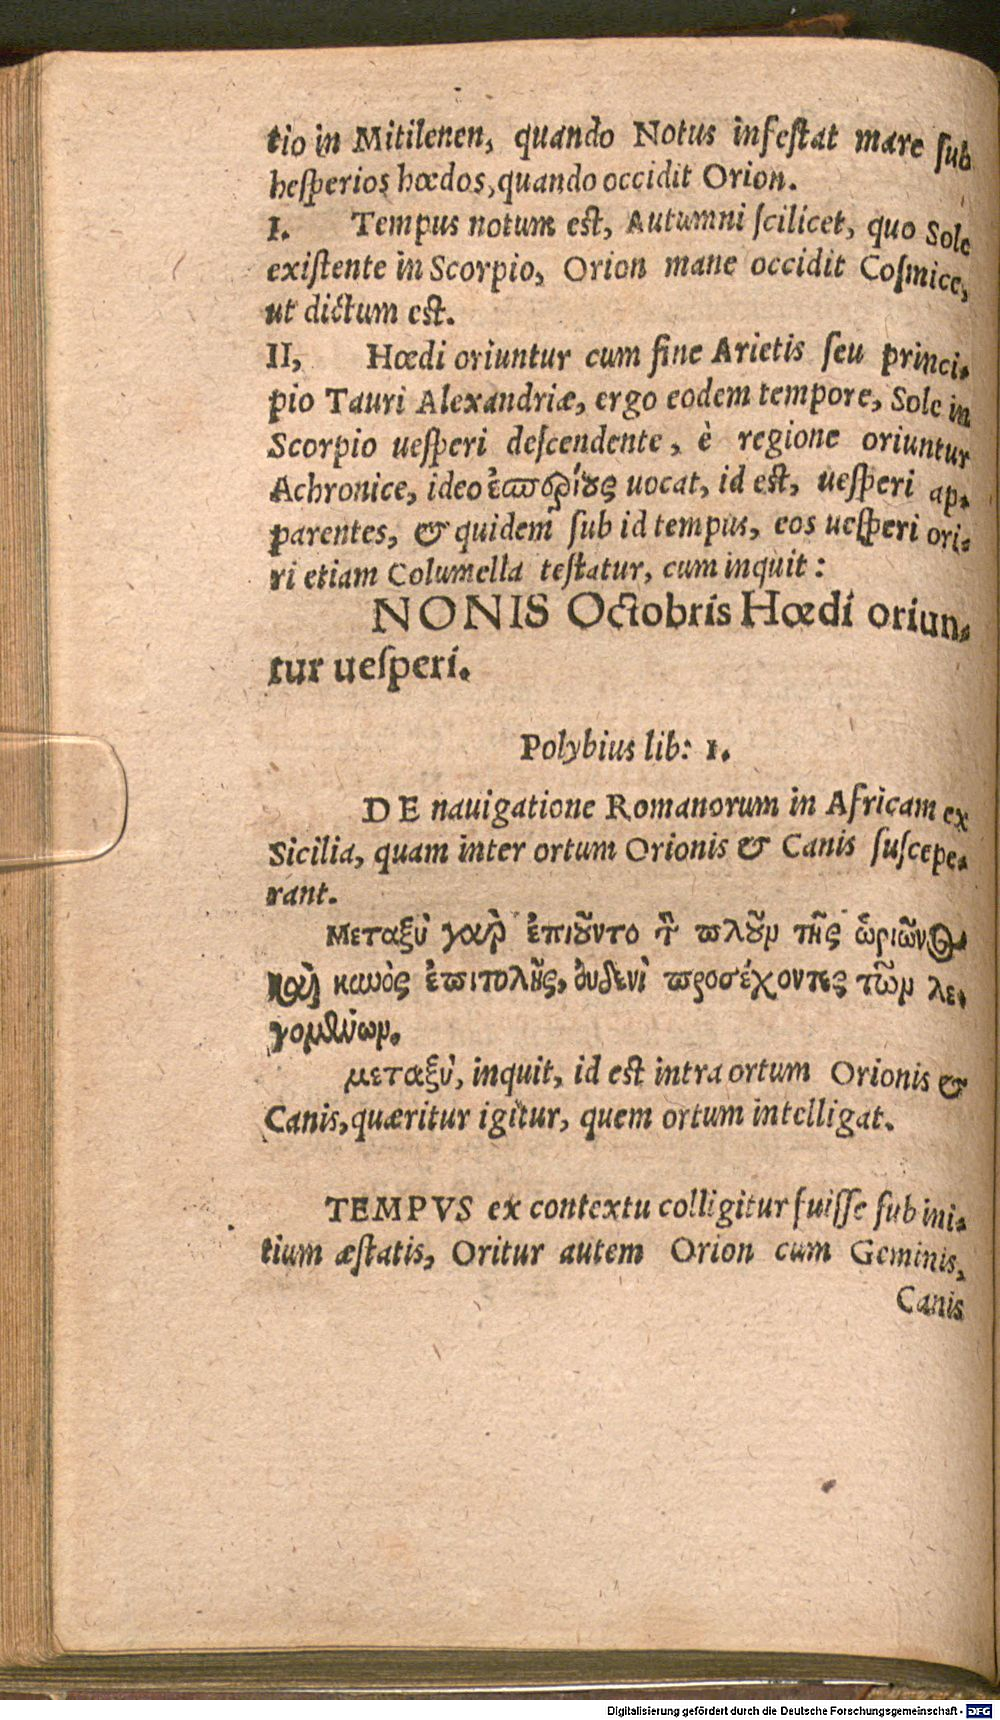 tio in Mitilenen, quando Notus infeſtat mare ſub
heſperios hœdos, quando occidit Orion.
I. Tempus notum eſt, Autumni ſcilicet, quo Sole
exiſtente in Scorpio, Orion mane occidit Coſmice,
ut dictum eſt.
II, Hœdi oriuntur cum fine Arietis ſeu princi-
pio Tauri Alexandriæ, ergo eodem tempore, Sole in
Scorpio ueſperi deſcendente, è regione oriuntur
Achronice, ideo ἑσπερίους uocat, id eſt, ueſperi ap-
parentes, & quidem ſub id tempus, eos ueſperi ori-
ri etiam Columella teſtatur, cum inquit:
NONIS Octobris Hœdi oriun-
tur ueſperi.
Polybius lib: 1.
DE nauigatione Romanorum in Africam ex
Sicilia, quam inter ortum Orionis & Canis ſuſcepe-
rant.
Μεταξὺ γὰρ ἐπιοῦντο τὸν πλοῦν τῆς ὠριῶνος
καὶ κυνὸς ἐπιτολῆς, οὐδενὶ προσέχοντες τῶν λε-
γομένων.
μεταξὺ, inquit, id eſt intra ortum Orionis &
Canis, quæritur igitur, quem ortum intelligat.
TEMPVS ex contextu colligitur fuiſſe ſub ini-
tium æſtatis, Oritur autem Orion cum Geminis,
Canis
Digitalisierung gefördert durch die Deutsche Forschungsgemeinschaft - DFG